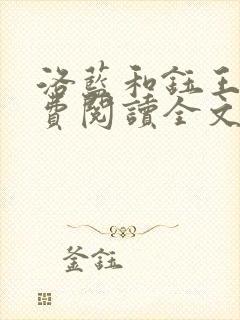 洛藍和鈺王
費閱讀全文
釜鈺